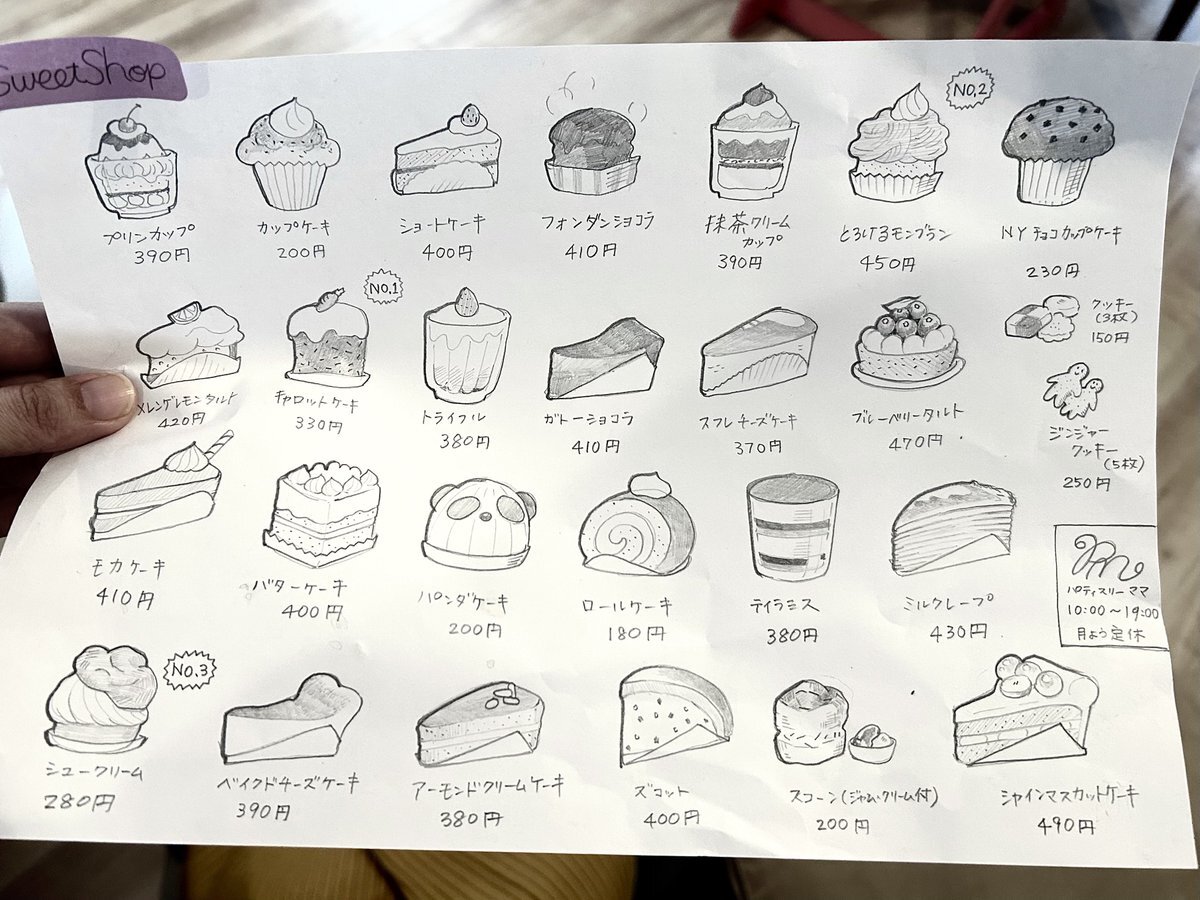 SweetShop
プリンカップ
390円
カップケーキ
200円
ショートケーキ
400円
フォンダンショコラ
410円
抹茶クリーム
カップ
390円
NO.2
とろけるモンブラン
450円
NYチョコカップケーキ
230円
メレンゲレモンタルト
420円
NO.1
キャロットケーキ
330円
トライフル
380円
ガトーショコラ
410円
スフレチーズケーキ
370円
ブルーベリータルト
470円
クッキー
(3枚)
150円
ジンジャー
クッキー
(5枚)
250円
モカケーキ
410円
バターケーキ
400円
パンダケーキ
200円
ロールケーキ
180円
ティラミス
380円
ミルクレープ
430円
パティスリーママ
10:00～19:00
月よう定休
NO.3
シュークリーム
280円
ベイクドチーズケーキ
390円
アーモンドクリームケーキ
380円
ズコット
400円
スコーン(ジャム・クリーム付)
200円
シャインマスカットケーキ
490円